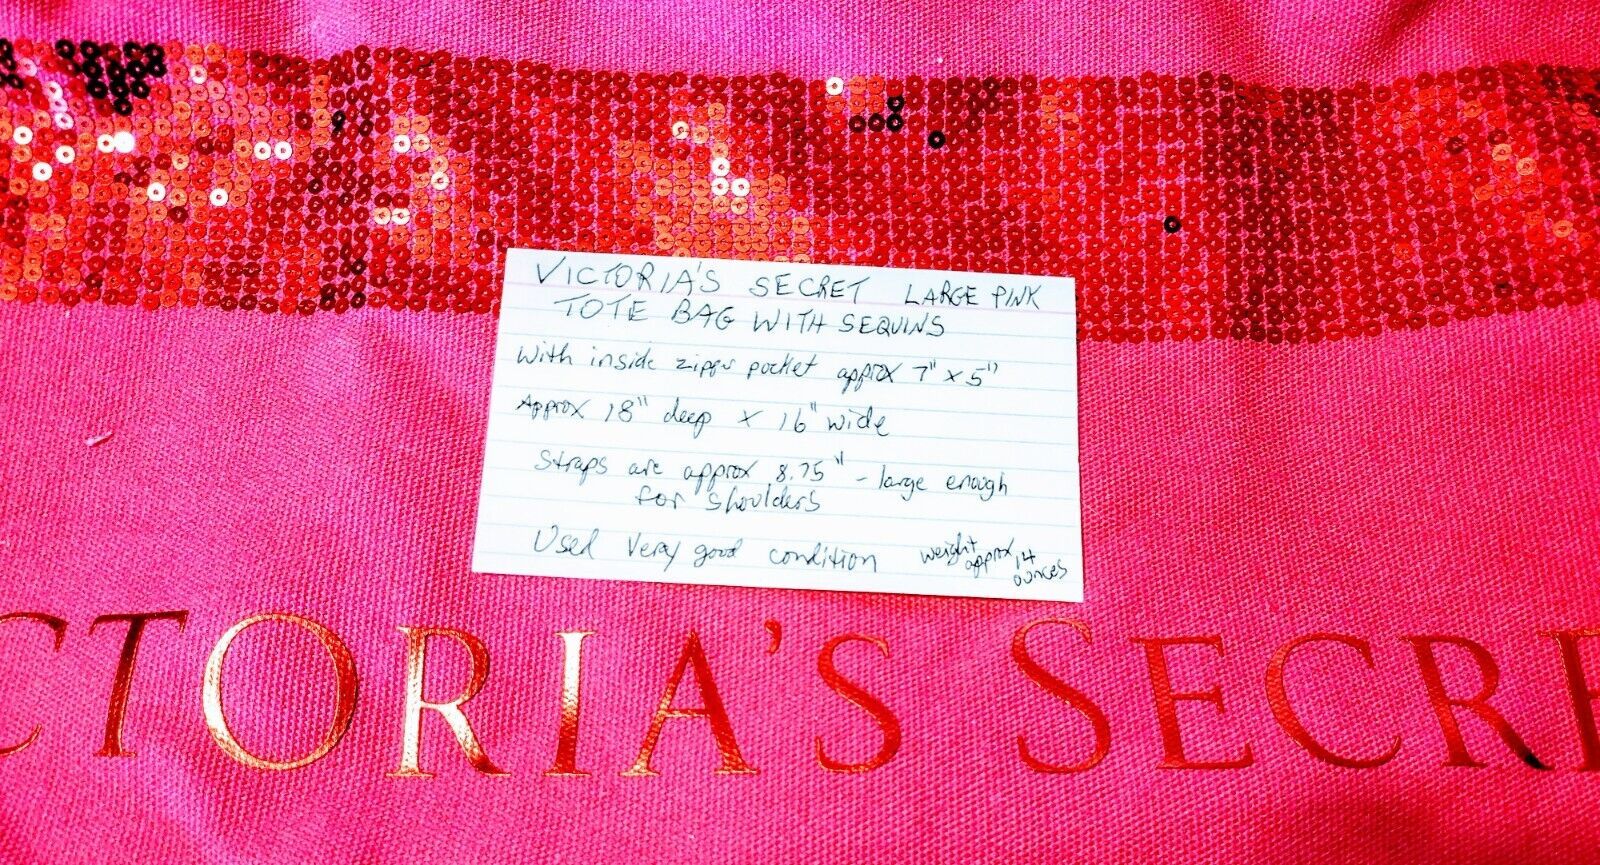 VICTORIA'S SECRET LARGE PINK
TOTE BAG WITH SEQUINS
With inside zipper pocket approx 7" x 5"
Approx 18" deep x 16" wide
Straps are approx 8.75" - large enough
for shoulders
Used Very good condition weight approx 14 ounces
CTORIA'S SECRE